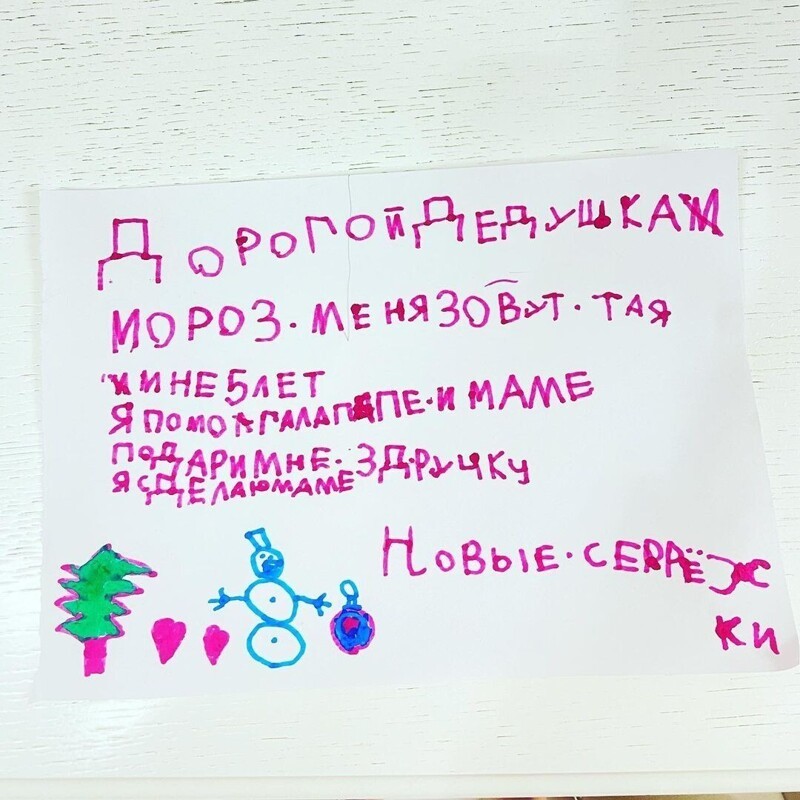 ДОРОГОЙ ДЕДУШКА М
МОРОЗ. МЕНЯ ЗОВУТ. ТАЯ
И МНЕ 5 ЛЕТ
Я ПОМОГАЛА ПАПЕ. И МАМЕ
ПОДАРИ МНЕ. 3Д. РУЧКУ
Я СДЕЛАЮ МАМЕ
НОВЫЕ. СЕРЁЖ
КИ